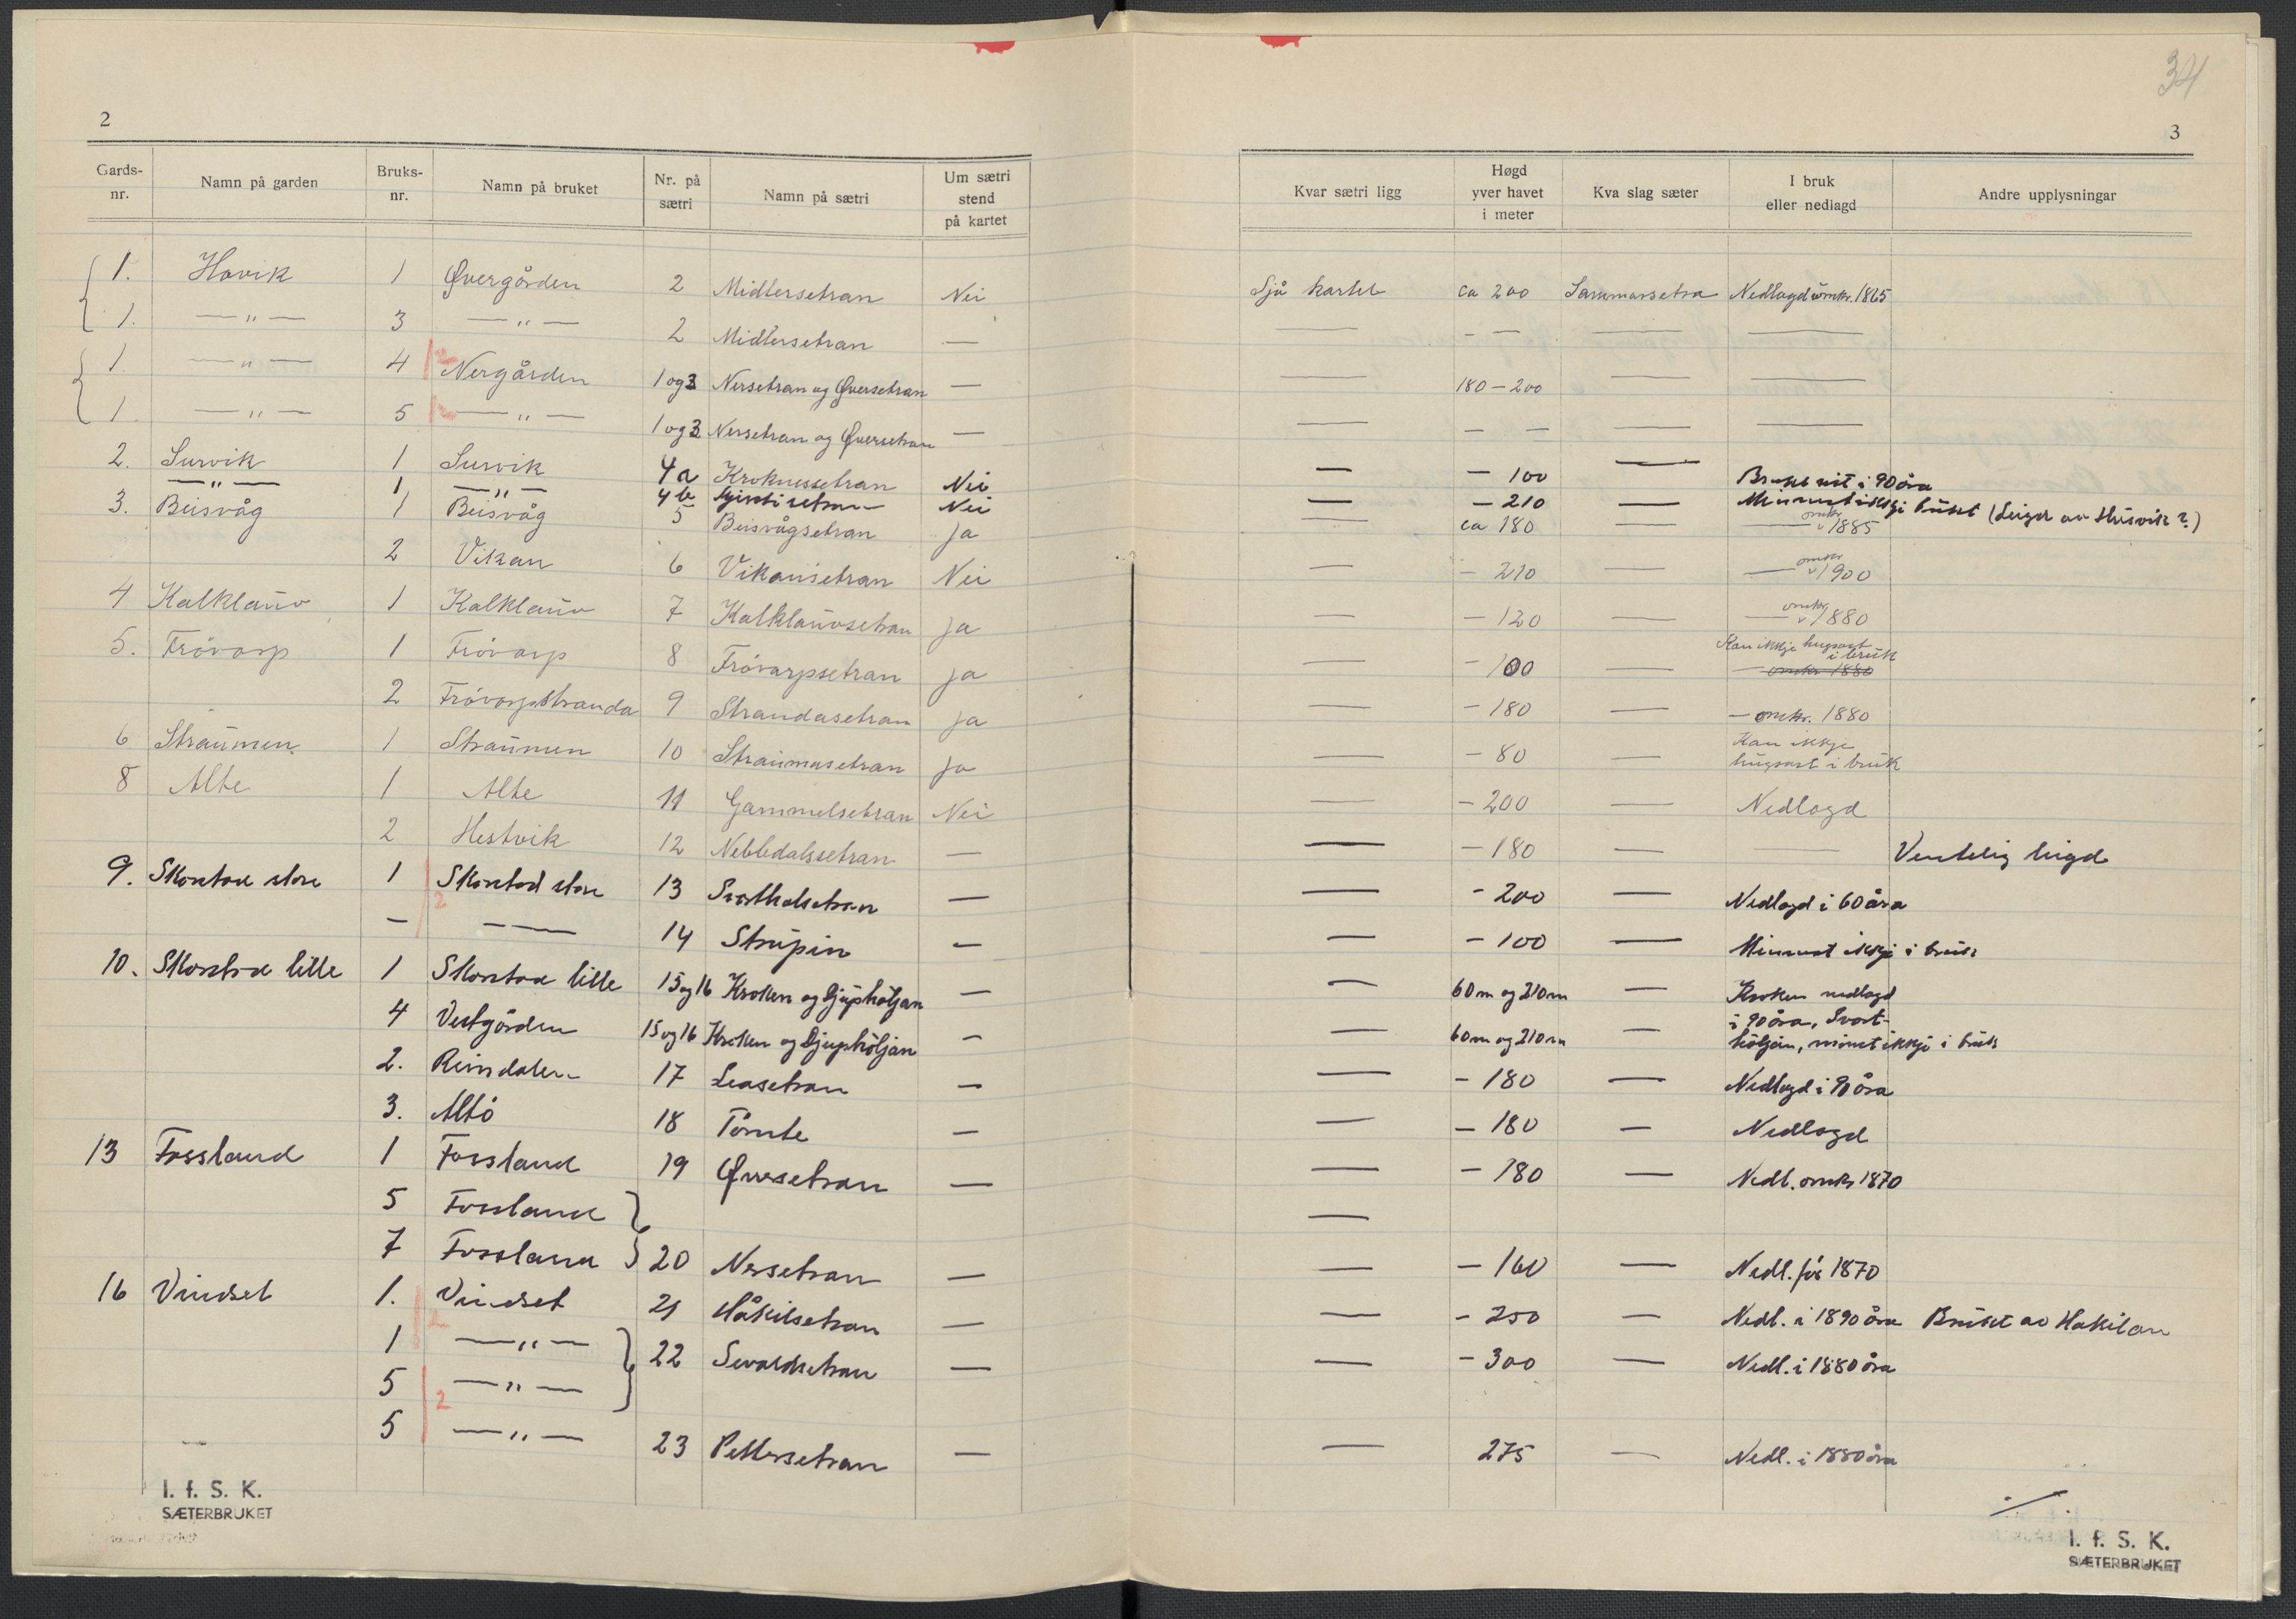 34
2
3
Gards-nr. | Namn på garden | Bruks-nr. | Namn på bruket | Nr. på sætri | Namn på sætri | Um sætri stend på kartet | Kvar sætri ligg | Høgd yver havet i meter | Kva slag sæter | I bruk eller nedlagd | Andre upplysningar
1. | Hovik | 1 | Øvergården | 2 | Midlersetran | Nei | Sjå kartet | ca 200 | Sammarsetra | Nedlagd omkr. 1865
1. | —"— | 3 | —"— | 2 | Midlersetran | — | — | - — | — | —
1. | —"— | 4 | 2 Nergården | 1 og 3 | Nersetran og Øversetran | — | — | 180 - 200 | — | —
1 | —"— | 5 | —"— | 1 og 3 | Nersetran og Øversetran | — | — | — — | — | —
2. | Survik | 1 | Survik | 4a | Kroknessetran | Nei | — | - 100 | — | Brukt sist i 90 åra
—"— | 1 | —"— | 4b | setran | Nei | — | - 210 | — | Minnest ikkje brukt (Leigd av Husvik?)
3. | Beisvåg | 1 | Beisvåg | 5 | Beisvågsetran | Ja | — | ca 180 | — | — omkr 1885
2 | Vikan | 6 | Vikansetran | Nei | — | - 210 | — | — omkr 1900
4 | Kalklauv | 1 | Kalklauv | 7 | Kalklauvsetran | Ja | — | - 120 | — | — omkr 1880
5. | Frövarp | 1 | Frövarp | 8 | Frövarpsetran | Ja | — | - 100 | — | Kan ikkje hugsast i bruk omkr 1880
2 | Frövarpstranda | 9 | Strandasetran | Ja | — | - 180 | — | — omkr. 1880
6 | Straumen | 1 | Straumen | 10 | Straumasetran | Ja | — | - 80 | — | Kan ikkje hugsast i bruk
8 | Alte | 1 | Alte | 11 | Gammelsetran | Nei | — | - 200 | — | Nedlagd
2 | Hestvik | 12 | Nebbdalssetran | — | — | - 180 | — | — | Ventelig leigd
9. | Skorstad store | 1 | 2 Skorstad store | 13 | Svartholsetran | — | — | - 200 | — | Nedlagd i 60 åra
— | — — | 14 | Strupen | — | — | - 100 | — | Minnest ikkje i bruk
10. | Skorstad lille | 1 | Skorstad lille | 15 og 16 | Kroken og Djuphöljan | — | — | 60 m og 210 m | — | Kroken nedlagd
4 | Vestgården | 15 og 16 | Kroken og Djuphöljan | — | — | 60 m og 210 m | — | i 90 åra, Svart-höljan, minnst ikkje i bruk
2. | Reindalen | 17 | Leasetran | — | — | - 180 | — | Nedlagd i 90 åra
3. | Altö | 18 | Tömte | — | — | - 180 | — | Nedlagd
13 | Fossland | 1 | Fossland | 19 | Øversetran | — | — | - 180 | — | Nedl. omkr 1870
5 | Fossland | —
7 | Fossland | 20 | Nersetran | — | — | - 160 | — | Nedl. för 1870
16 | Vindset | 1. | 2 Vindset | 21 | Håkilsetran | — | — | - 250 | — | Nedl. i 1890 åra | Brukt av Hakilan
1 | —"— | 22 | Sivaldsetran | — | — | - 300 | — | Nedl. i 1880 åra
5 | 2 —"—
5 | —"— | 23 | Pettersetran | — | — | 275 | — | Nedl. i 1880 åra
I. f. S. K.
SÆTERBRUKET
I. f. S. K.
SÆTERBRUKET